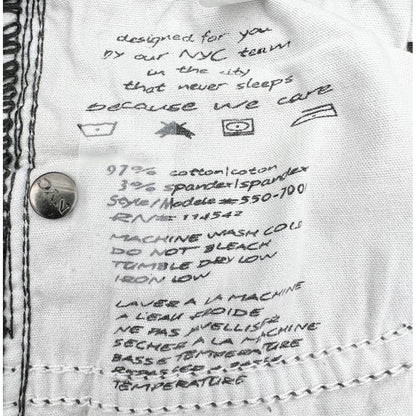 designed for you
by our NYC team
in the city
that never sleeps
because we care
97% cotton/coton
3% spandex/spandex
Style/Modele# 550-700
RN# 114542
MACHINE WASH COLD
DO NOT BLEACH
TUMBLE DRY LOW
IRON LOW
LAVER A LA MACHINE
A L'EAU FROIDE
NE PAS
SECHER A LA MACHINE
BASSE TEMPERATURE
TEMPERATURE